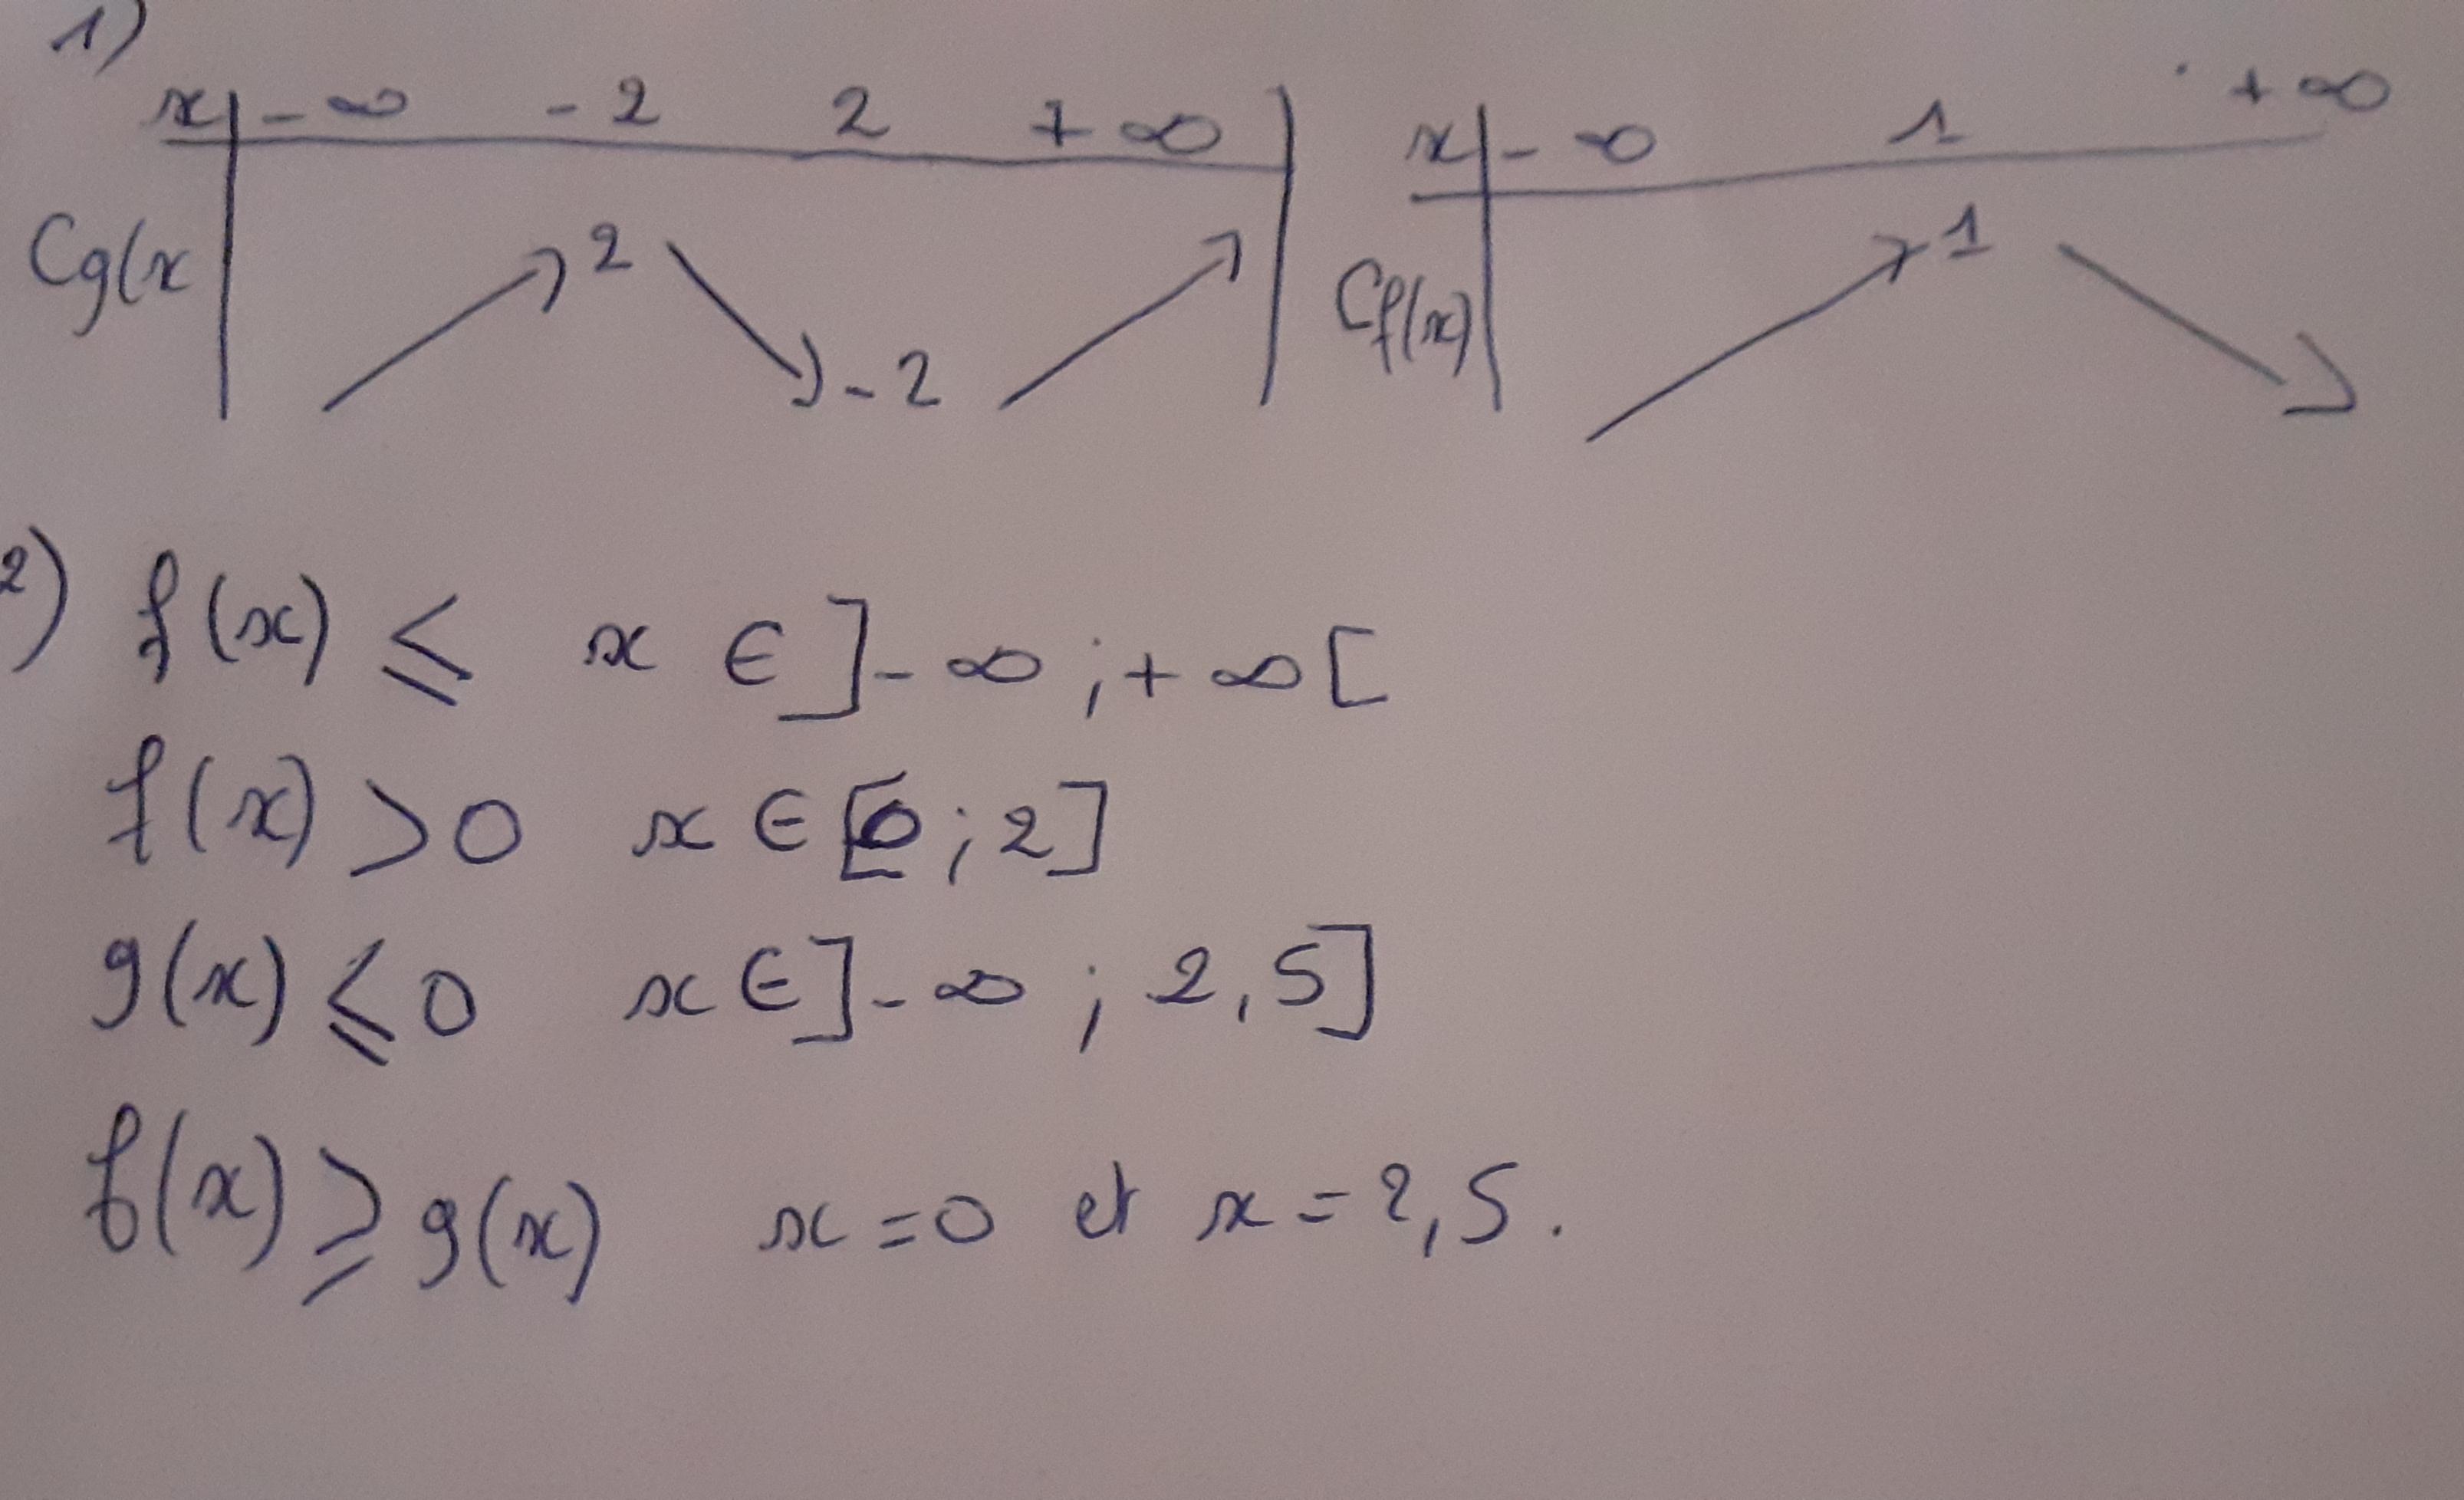 1)
x | -∞ -2 2 +∞ | x | -∞ 1 +∞
Cg(x | ↗ 2 ↘ -2 ↗ | Cf(x) | ↗ 1 ↘
2) f(x) ⩽ x ∈ ]-∞ ; +∞[
f(x) > 0 x ∈ [0 ; 2]
g(x) ⩽ 0 x ∈ ]-∞ ; 2,5]
f(x) ⩾ g(x) x = 0 et x = 2,5.